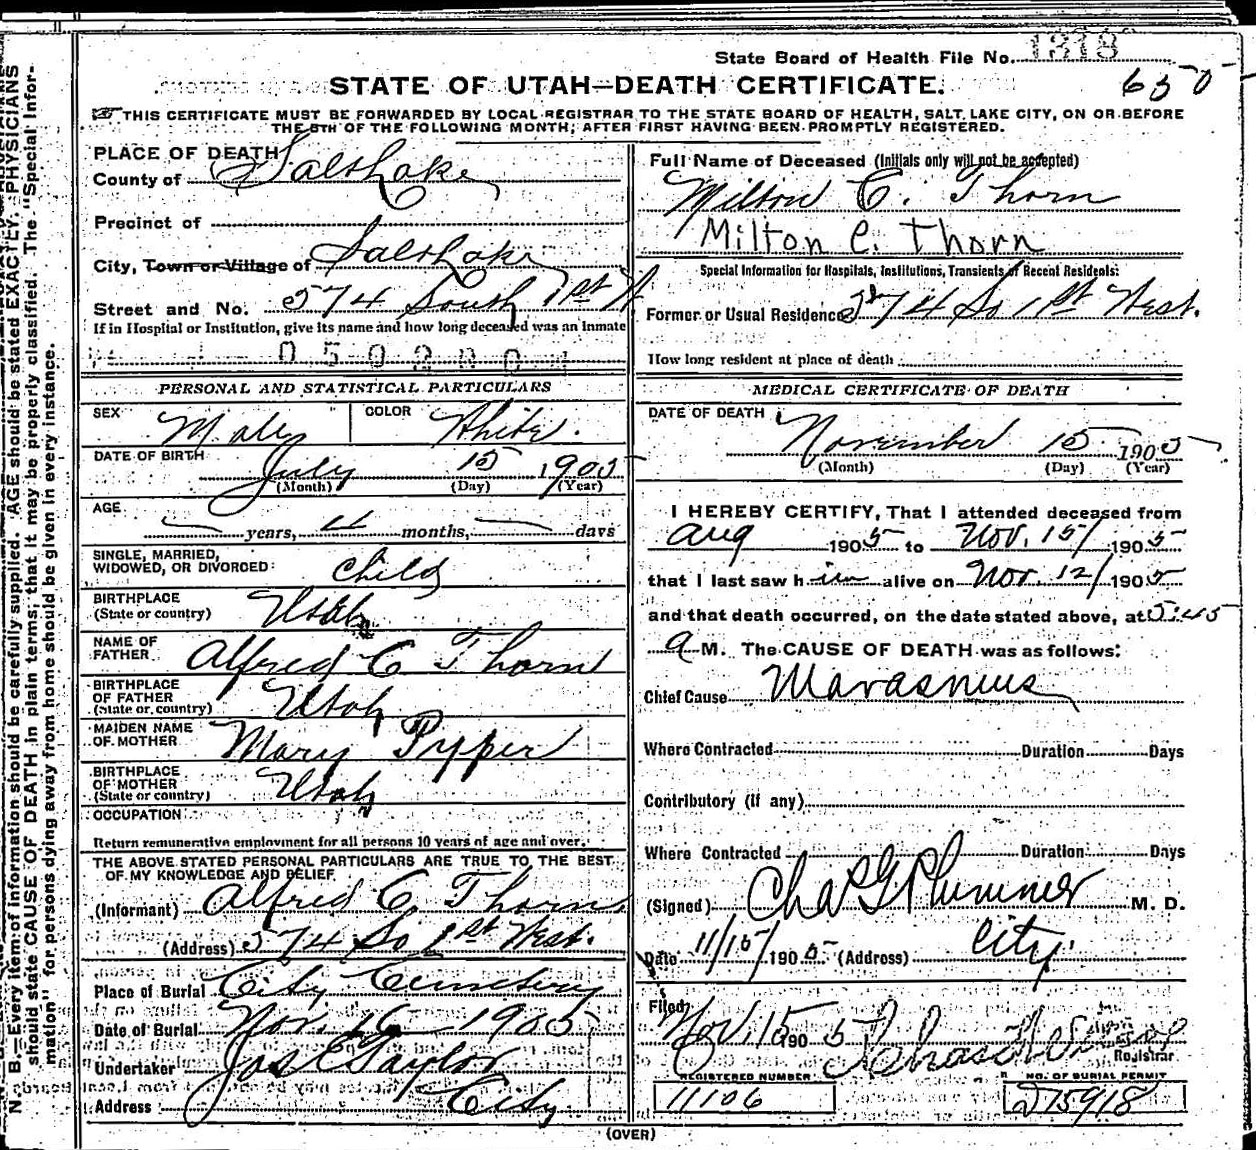 State Board of Health File No. 1318
650
STATE OF UTAH—DEATH CERTIFICATE.
THIS CERTIFICATE MUST BE FORWARDED BY LOCAL REGISTRAR TO THE STATE BOARD OF HEALTH, SALT LAKE CITY, ON OR BEFORE
THE 5TH OF THE FOLLOWING MONTH, AFTER FIRST HAVING BEEN PROMPTLY REGISTERED.
N. B.—Every item of information should be carefully supplied. AGE should be stated EXACTLY. PHYSICIANS
should state CAUSE OF DEATH in plain terms, that it may be properly classified. The "Special Infor-
mation" for persons dying away from home should be given in every instance.
PLACE OF DEATH
County of Salt Lake
Precinct of
City, Town or Village of Salt Lake
Street and No. 574 South 1st W
If in Hospital or Institution, give its name and how long deceased was an inmate
PERSONAL AND STATISTICAL PARTICULARS
SEX Male COLOR White.
DATE OF BIRTH July 15 1905
(Month) (Day) (Year)
AGE
years, 4 months, days
SINGLE, MARRIED,
WIDOWED, OR DIVORCED: Child
BIRTHPLACE
(State or country) Utah
NAME OF
FATHER Alfred C Thorn
BIRTHPLACE
OF FATHER
(State or country) Utah
MAIDEN NAME
OF MOTHER Mary Pypper
BIRTHPLACE
OF MOTHER
(State or country) Utah
OCCUPATION
Return remunerative employment for all persons 10 years of age and over.
THE ABOVE STATED PERSONAL PARTICULARS ARE TRUE TO THE BEST
OF MY KNOWLEDGE AND BELIEF
(Informant) Alfred C Thorn
(Address) 574 So 1st West.
Place of Burial City Cemetery
Date of Burial Nov. 16 1905
Undertaker Jos E Taylor
Address City
Full Name of Deceased (Initials only will not be accepted)
Milton C. Thorn
Milton C. Thorn
Special Information for Hospitals, Institutions, Transients or Recent Residents:
Former or Usual Residence 574 So 1st West.
How long resident at place of death
MEDICAL CERTIFICATE OF DEATH
DATE OF DEATH
November 15 1905
(Month) (Day) (Year)
I HEREBY CERTIFY, That I attended deceased from
Aug 1905 to Nov. 15/ 1905
that I last saw him alive on Nov. 12/ 1905
and that death occurred, on the date stated above, at 5:45
a M. The CAUSE OF DEATH was as follows:
Chief Cause Marasmus
Where Contracted Duration Days
Contributory (if any)
Where Contracted Duration Days
(Signed) Chas G Plummer M. D.
Date 11/15/ 1905 (Address) City.
Filed
Nov. 15 1905
Registrar
REGISTERED NUMBER NO. OF BURIAL PERMIT
11106 275918
(OVER)